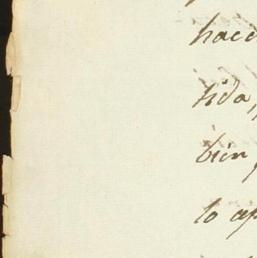 haci
tida,
bien,
to ap